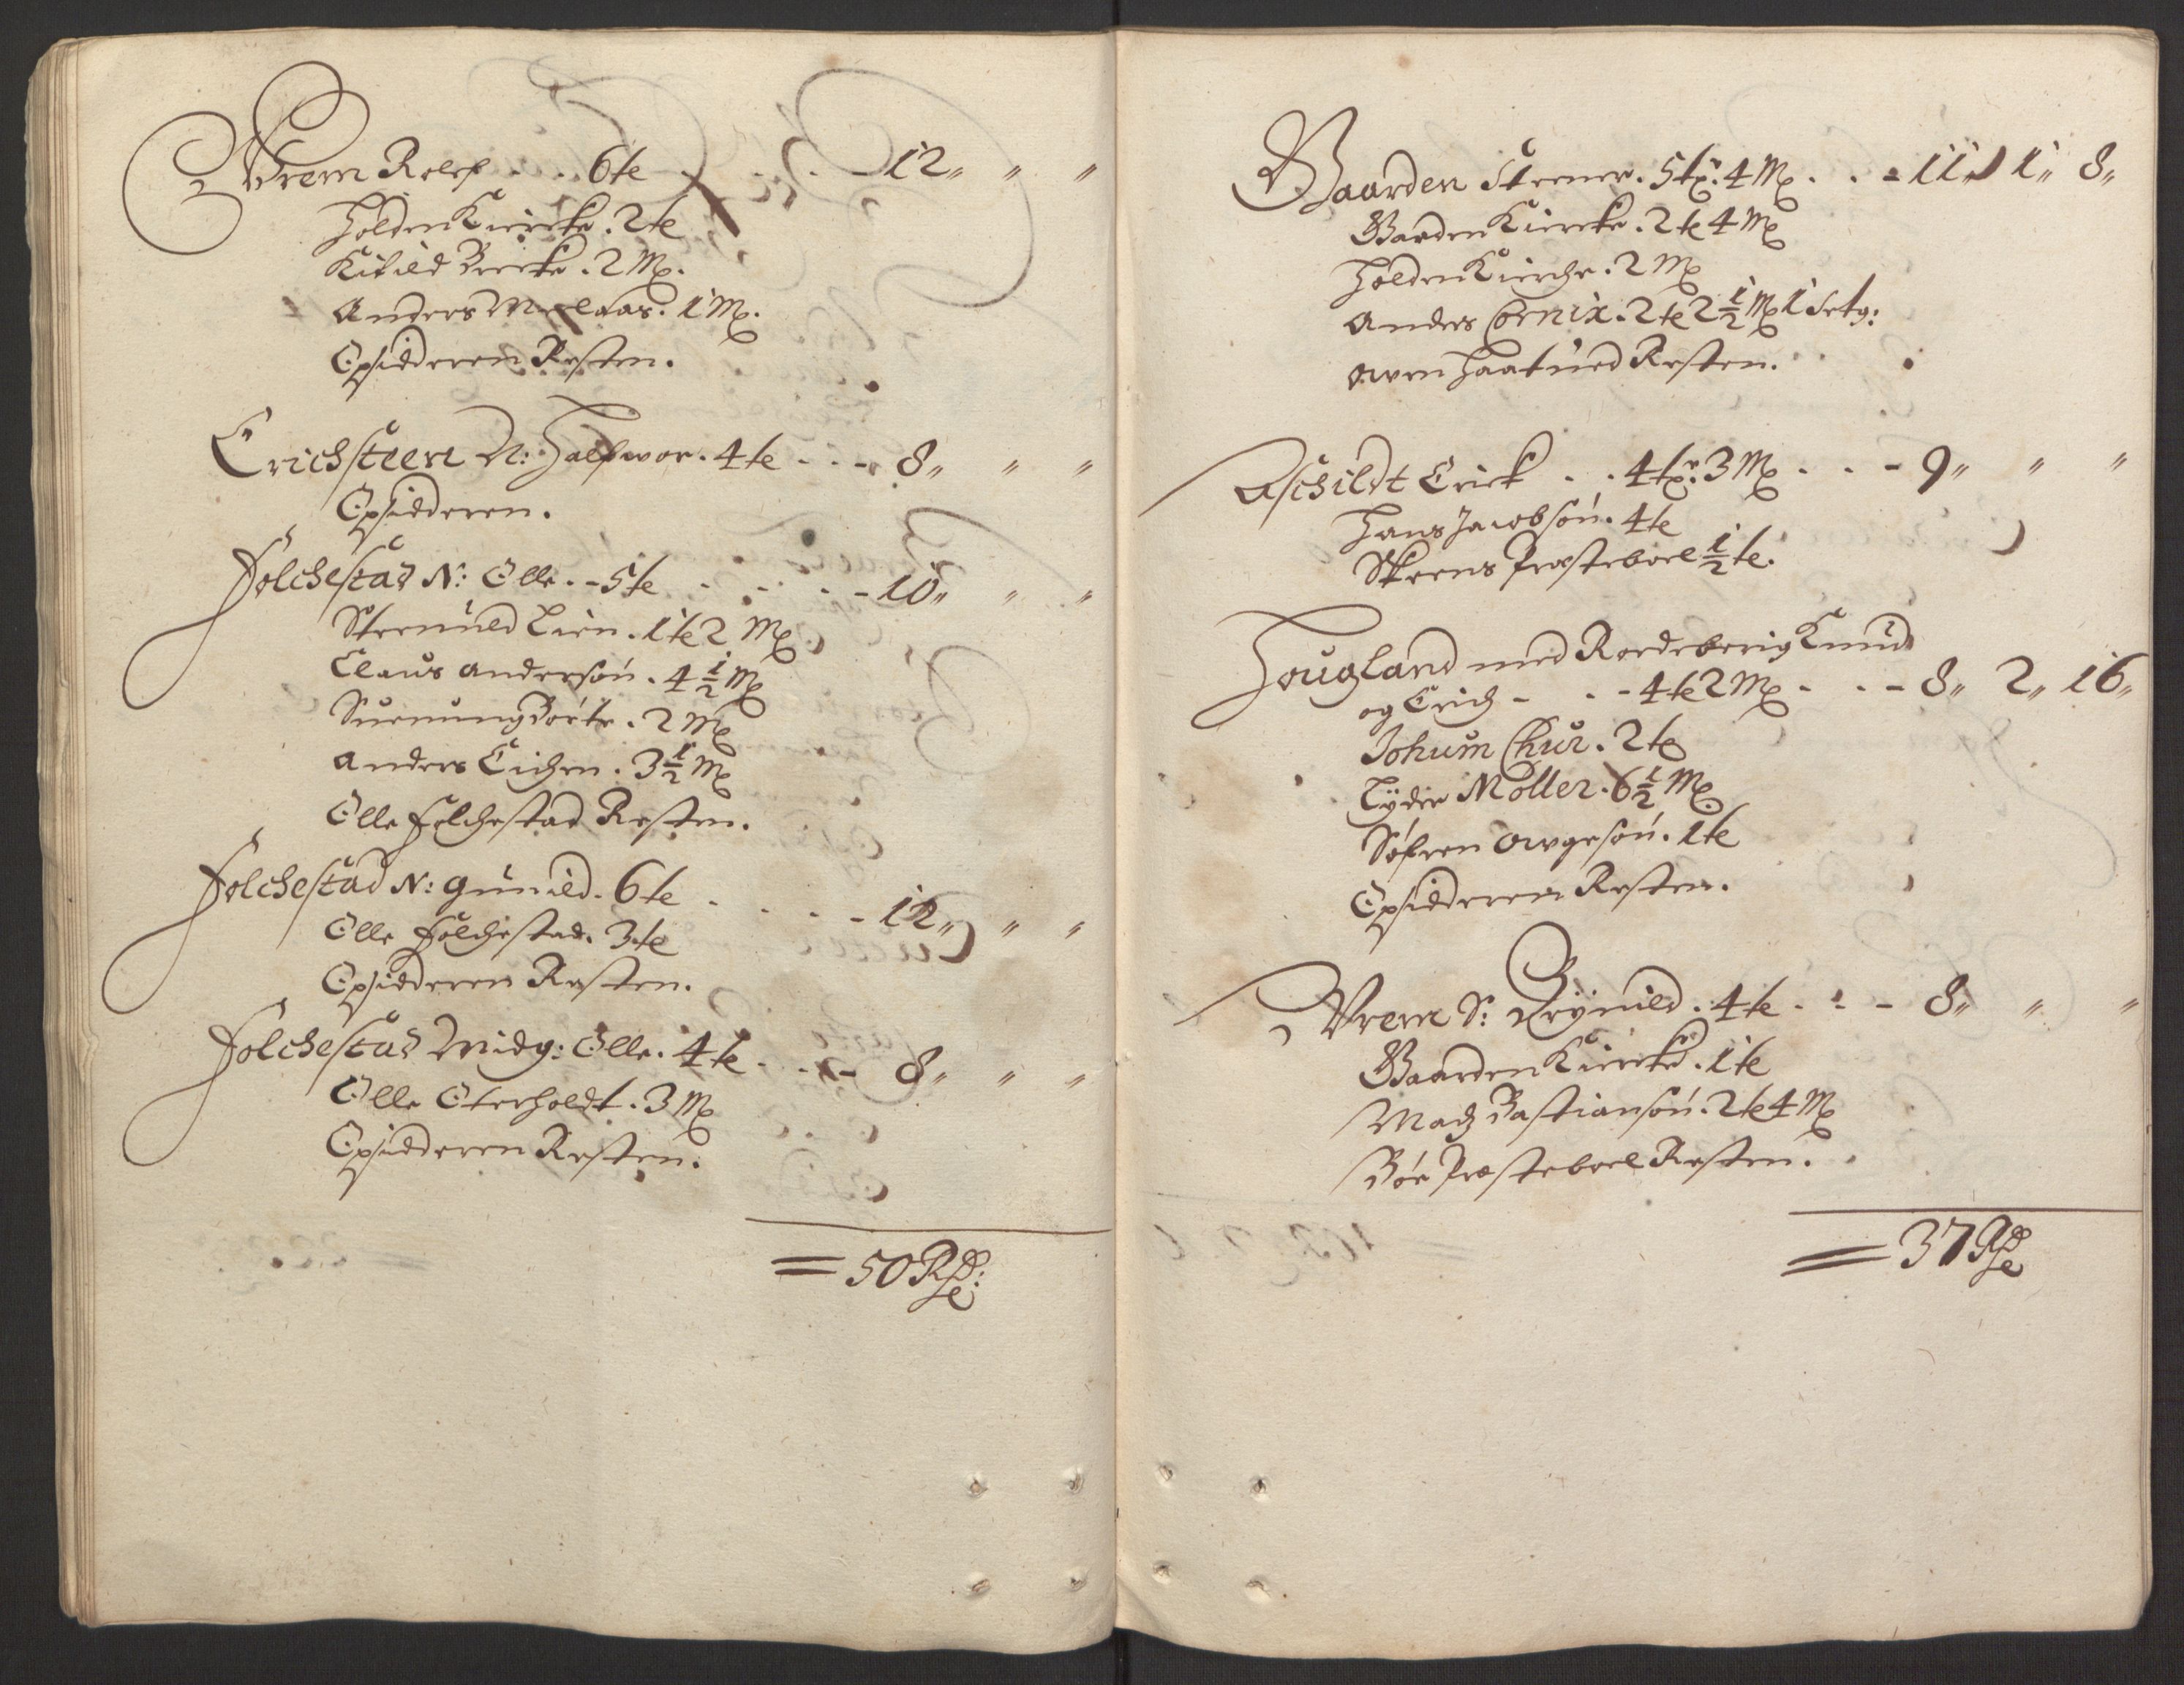 Wrem Rolef . . . 6 te . . . - 12„ „ „
Holden Kiercke . 2 te
Kitild Vercke . 2 Mr.
Anders Melaas . 1 Mr.
Opsidderen Resten .
Erichsteen N: Halfwor . 4 te . . - 8„ „ „
Opsidderen .
Folchestad N: Olle . - 5 te . . . . - 10„ „ „
Steenuld Lien . 1 te 2 Mr
Claus Andersøn . 4 1/2 Mr
Suenung Børte . 2 Mr
Anders Eichen . 3 1/2 Mr
Olle Folchestad Resten .
Folchestad N: Gunild . 6 te . . . . - 12„ „ „
Olle Folchestad . 3 te
Opsidderen Resten .
Folchestad Midg: Olle . 4 te . . . - 8„ „ „
Olle Oterholdt . 3 Mr
Opsidderen Resten .
= 50 Rdr:
Gaarden Steener . 5 tr: 4 Mr . . . - 11„ 1„ 8„
Gaarden Kiercke . 2 te 4 Mr
Holden Kierche . 2 Mr
Anders Cornix . 2 te 2 1/2 Mr 1 Setg:
Awen Haatued Resten .
Aschildt Erick . . 4 tr: 3 Mr . . . - 9„ „ „
Hans Jacobsøn . 4 te
Skeens Præsteboel 1/2 te .
Hougland med Roedeberig Knud
og Erich - . . - 4 te 2 Mr . . . - 8„ 2„ 16„
Johum Chur . 2 te
Lÿder Møller . 6 1/2 Mr
Søfren Awgesøn . 1 te
Opsidderen Resten .
Wrem S: Brÿnild . 4 te . . . - 8„ „ „
Gaarden Kiercke . 1 te
Madz Bastiansøn . 2 te 4 Mr
Bøe Præsteboel Resten .
= 37 Rdr